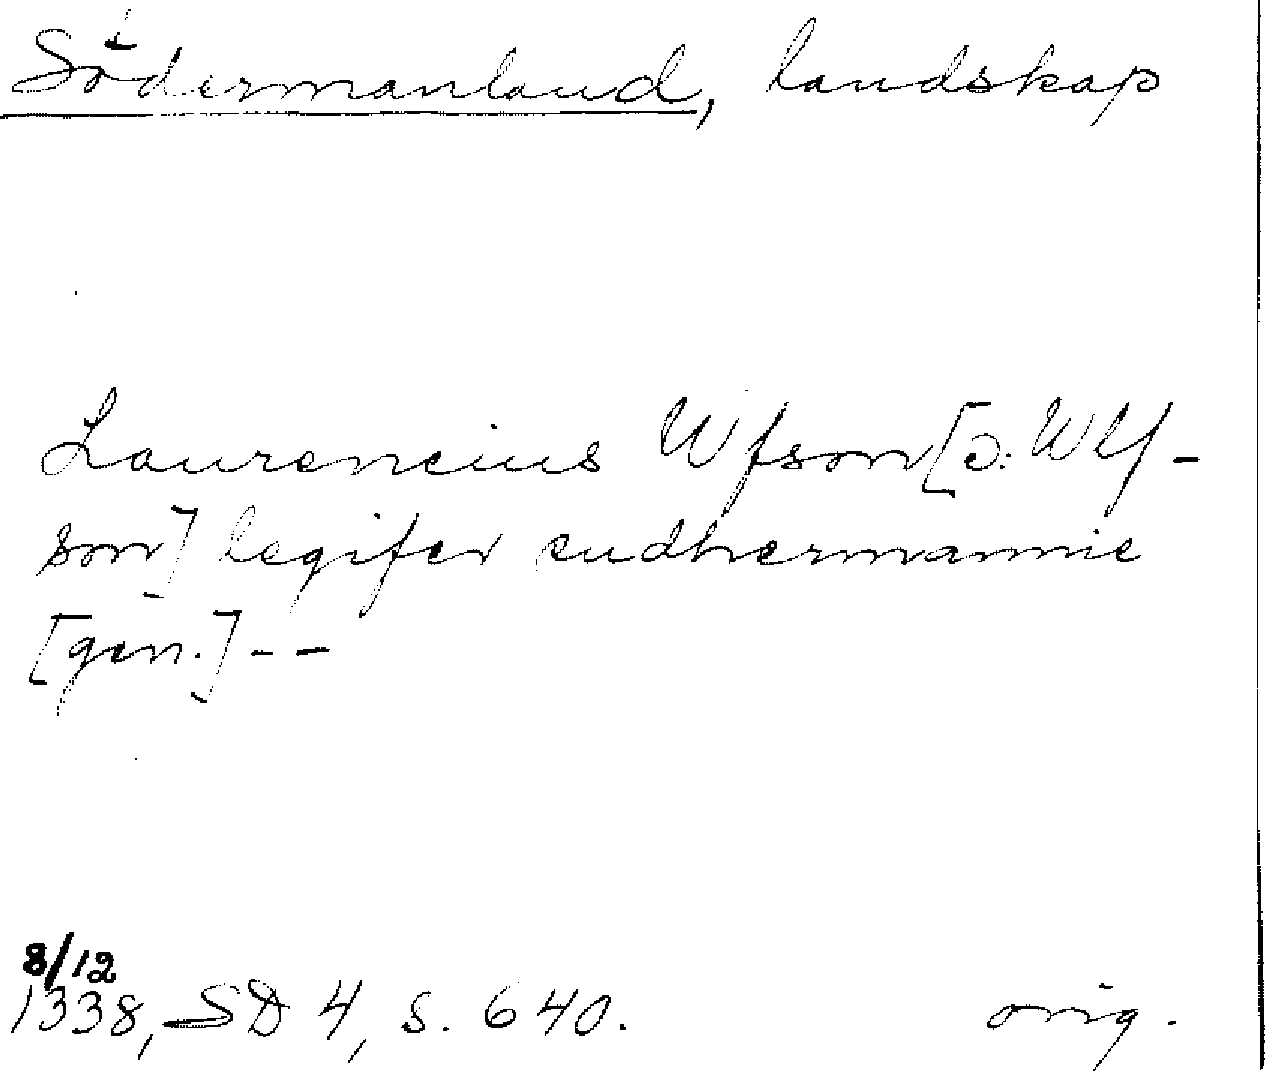 Södermanland, landskap
Laurencius Wfson [ɔ: Wlf-
son] legifer sudhermannie
[gen.] - -
8/12
1338, SD 4, s. 640. orig.